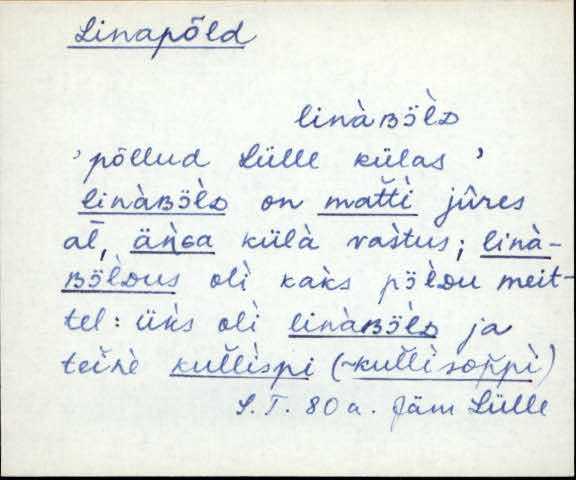 Linapõld
linàʙɜ̈̀lᴅ
'põllud Lülle külas'
linàʙɜ̈̀lᴅ on mat̆t̆ì jûres
al̄, äǹɢa külà vaštus; linà-
ʙɜ̈̀lᴅus olì kaks pɜ̈̀lᴅu meit-
tel: üks olì linàʙɜ̈̀lᴅ ja
teiǹè kul̆l̆ìspi (~kul̆l̆ìsop̆p̆ì)
S.T. 80 a. Jäm Lülle